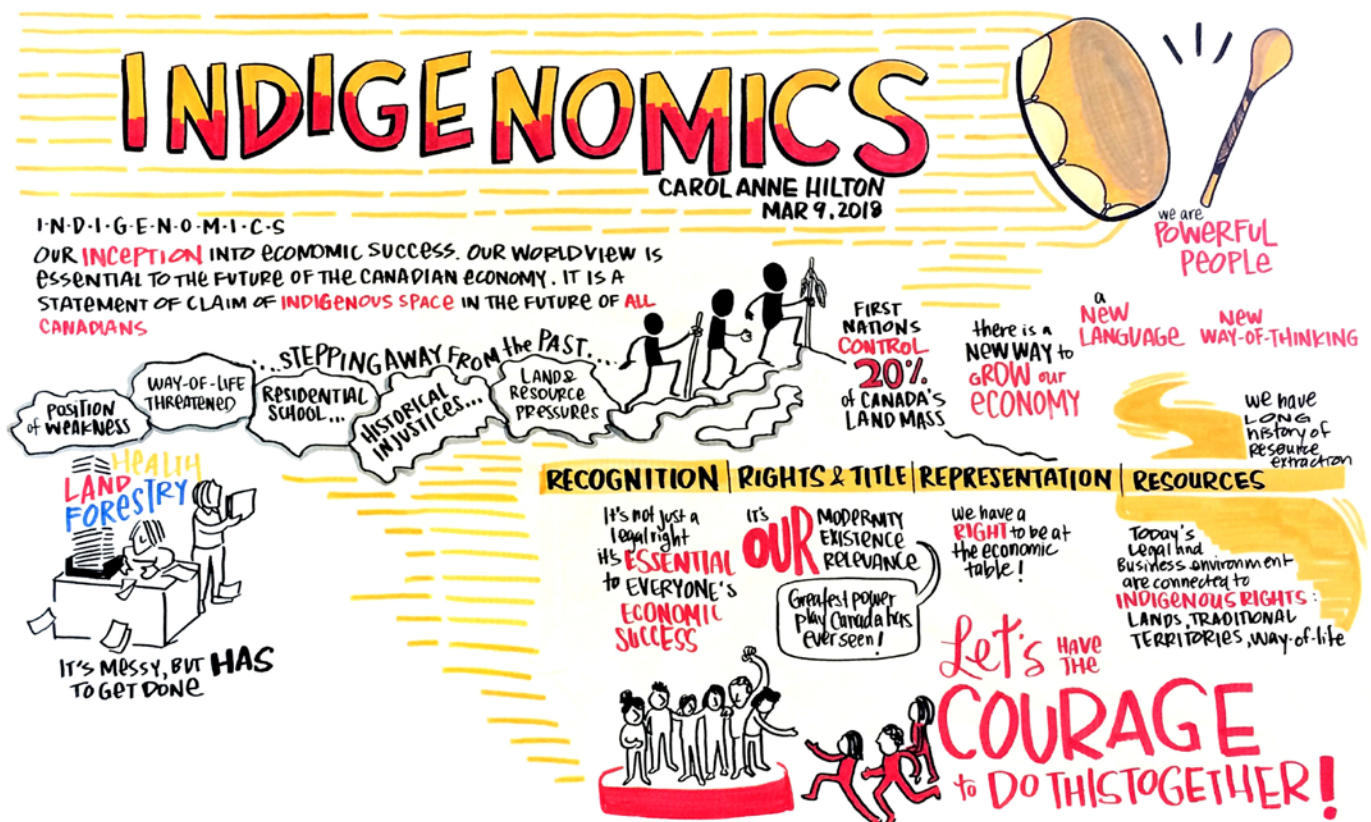 INDIGENOMICS
CAROL ANNE HILTON
MAR 9, 2018
we are
POWERFUL
PEOPLE
I·N·D·I·G·E·N·O·M·I·C·S
OUR INCEPTION INTO ECONOMIC SUCCESS. OUR WORLDVIEW IS
ESSENTIAL TO THE FUTURE OF THE CANADIAN ECONOMY. IT IS A
STATEMENT OF CLAIM OF INDIGENOUS SPACE IN THE FUTURE OF ALL
CANADIANS
...STEPPING AWAY FROM the PAST....
POSITION
of WEAKNESS
WAY-OF-LIFE
THREATENED
RESIDENTIAL
SCHOOL...
HISTORICAL
INJUSTICES...
LAND &
RESOURCE
PRESSURES
FIRST
NATIONS
CONTROL
20%
of CANADA'S
LAND MASS
there is a
NEW WAY to
GROW our
ECONOMY
a
NEW
LANGUAGE
NEW
WAY-OF-THINKING
we have
LONG
history of
RESOURCE
extraction
HEALTH
LAND
FORESTRY
IT'S MESSY, BUT HAS
TO GET DONE
RECOGNITION | RIGHTS & TITLE | REPRESENTATION | RESOURCES
It's not just a
legal right
it's ESSENTIAL
to EVERYONE'S
ECONOMIC
SUCCESS
IT'S
OUR
MODERNITY
EXISTENCE
RELEVANCE
Greatest power
play Canada has
ever seen!
We have a
RIGHT to be at
the economic
table!
TODAY'S
Legal and
Business environment
are connected to
INDIGENOUS RIGHTS:
LANDS, TRADITIONAL
TERRITORIES, WAY-of-life
Let's HAVE
THE
COURAGE
to DO THIS TOGETHER!